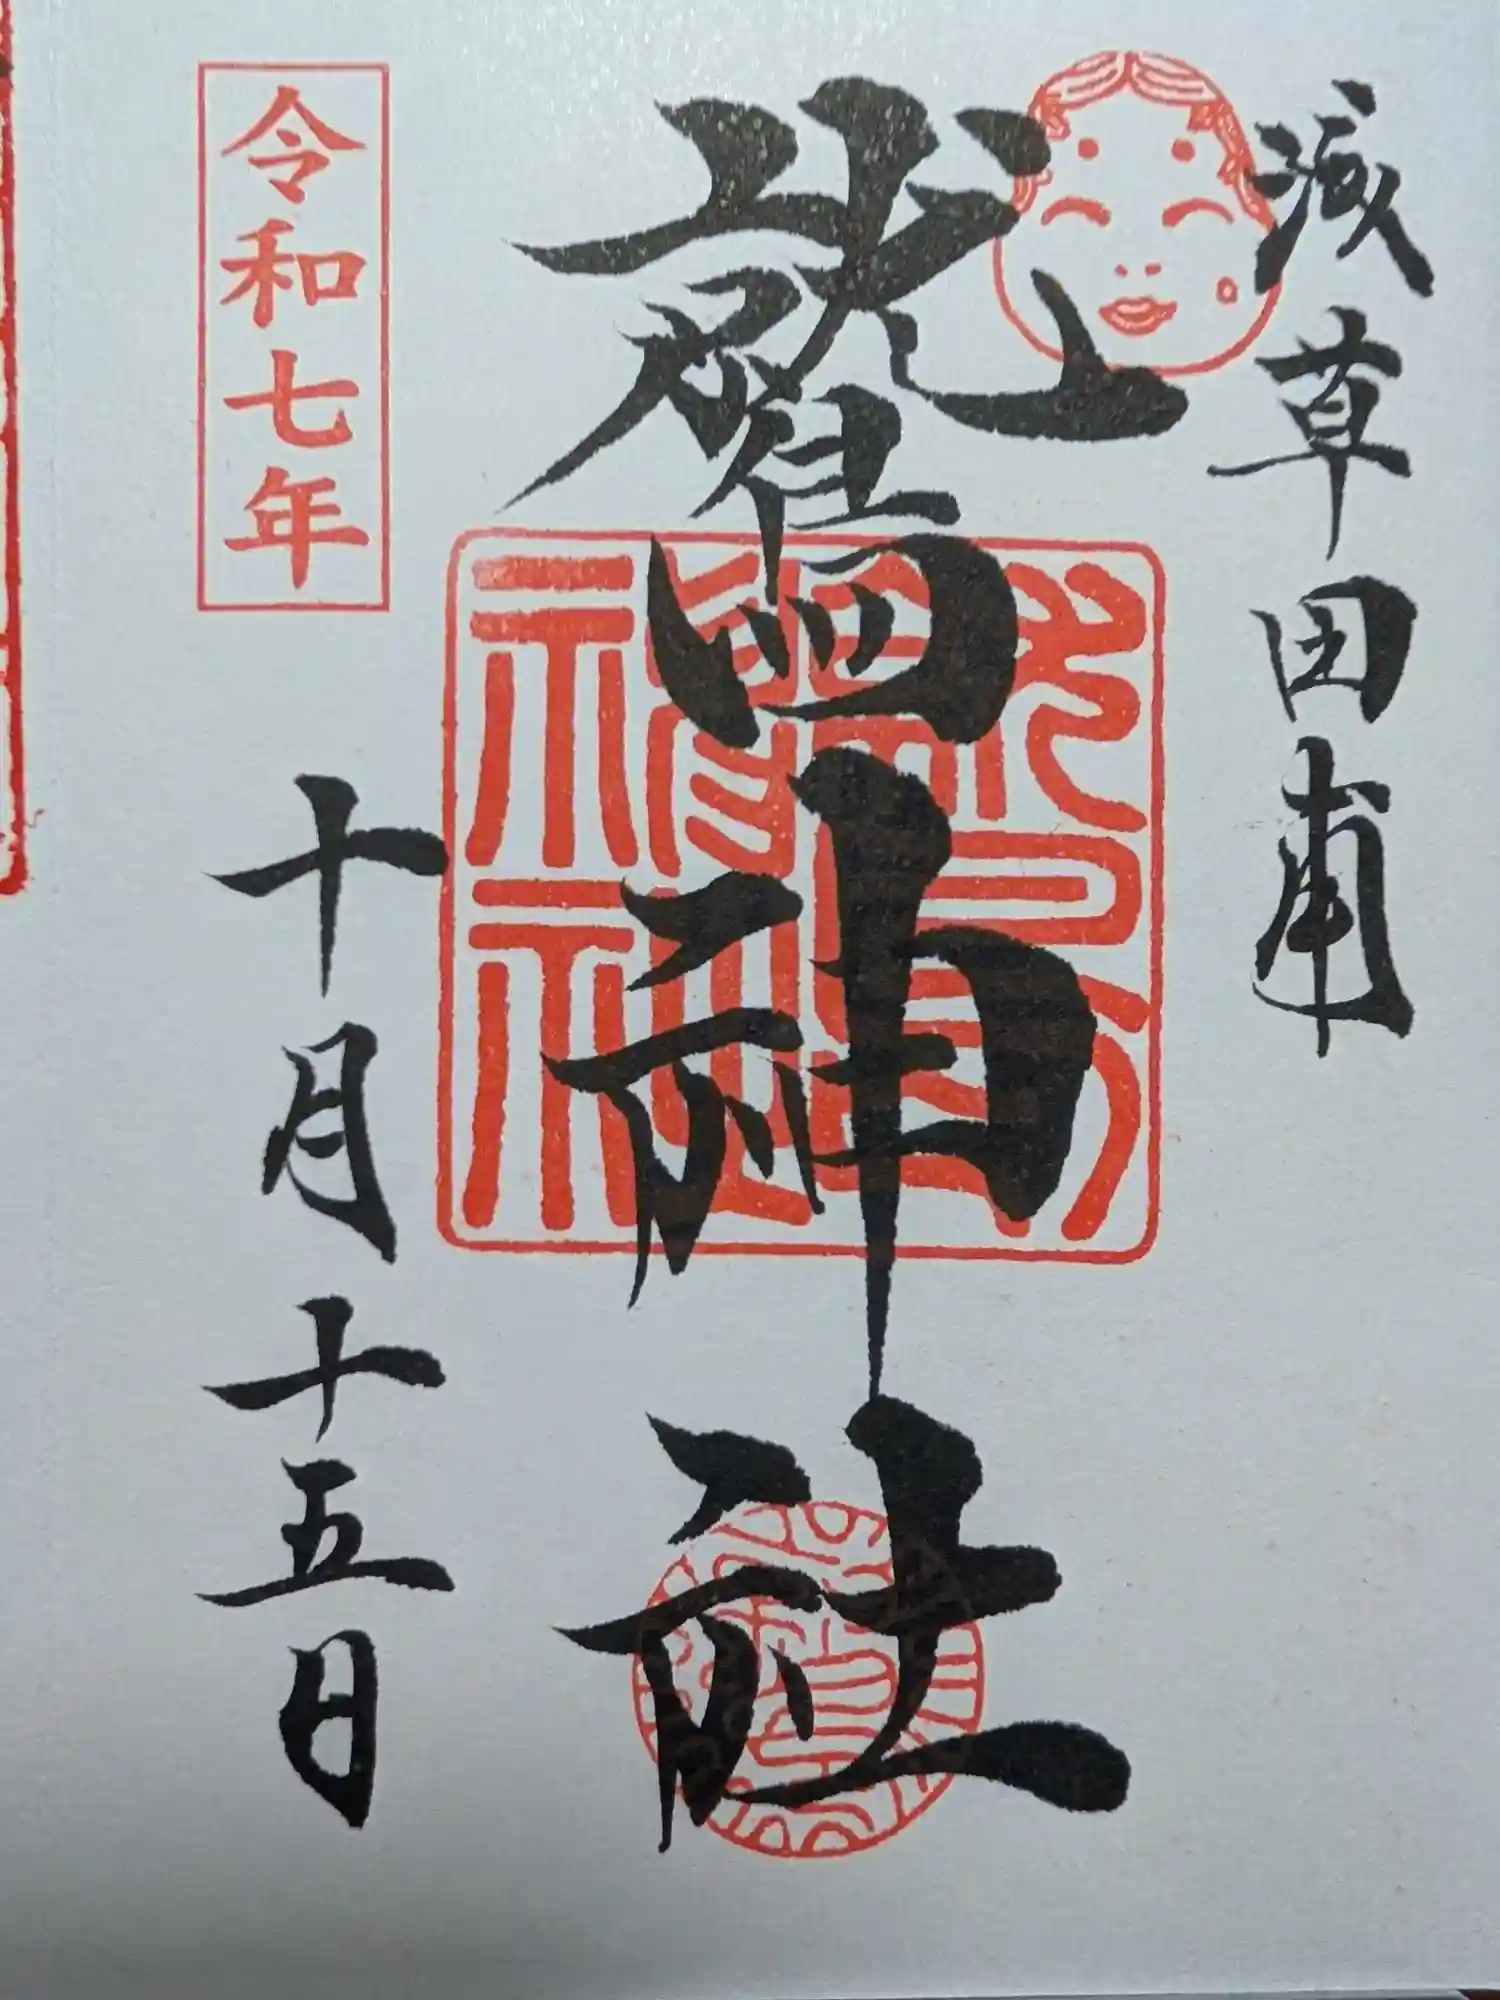 浅草田甫
鷲神社
鷲神社
令和七年
十月十五日